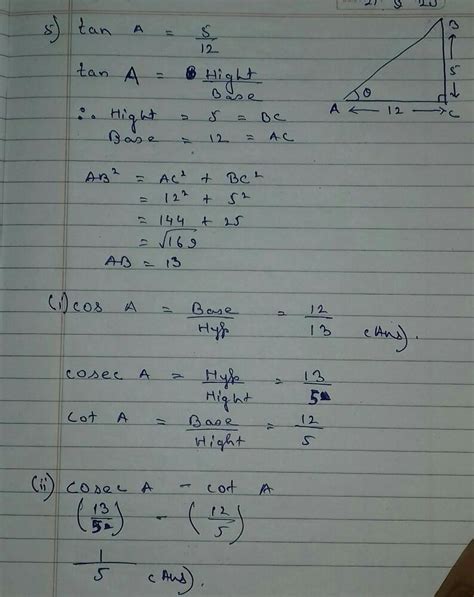 5) tan A = 5/12
B
5
θ
A ← 12 → C
tan A = Hight/Base
∴ Hight = 5 = BC
Base = 12 = AC
AB² = AC² + BC²
= 12² + 5²
= 144 + 25
= √169
AB = 13
(i) cos A = Base/Hyp = 12/13 (Ans).
cosec A = Hyp/Hight = 13/5
cot A = Base/Hight = 12/5
(ii) cosec A - cot A
(13/5) - (12/5)
1/5 (Ans).